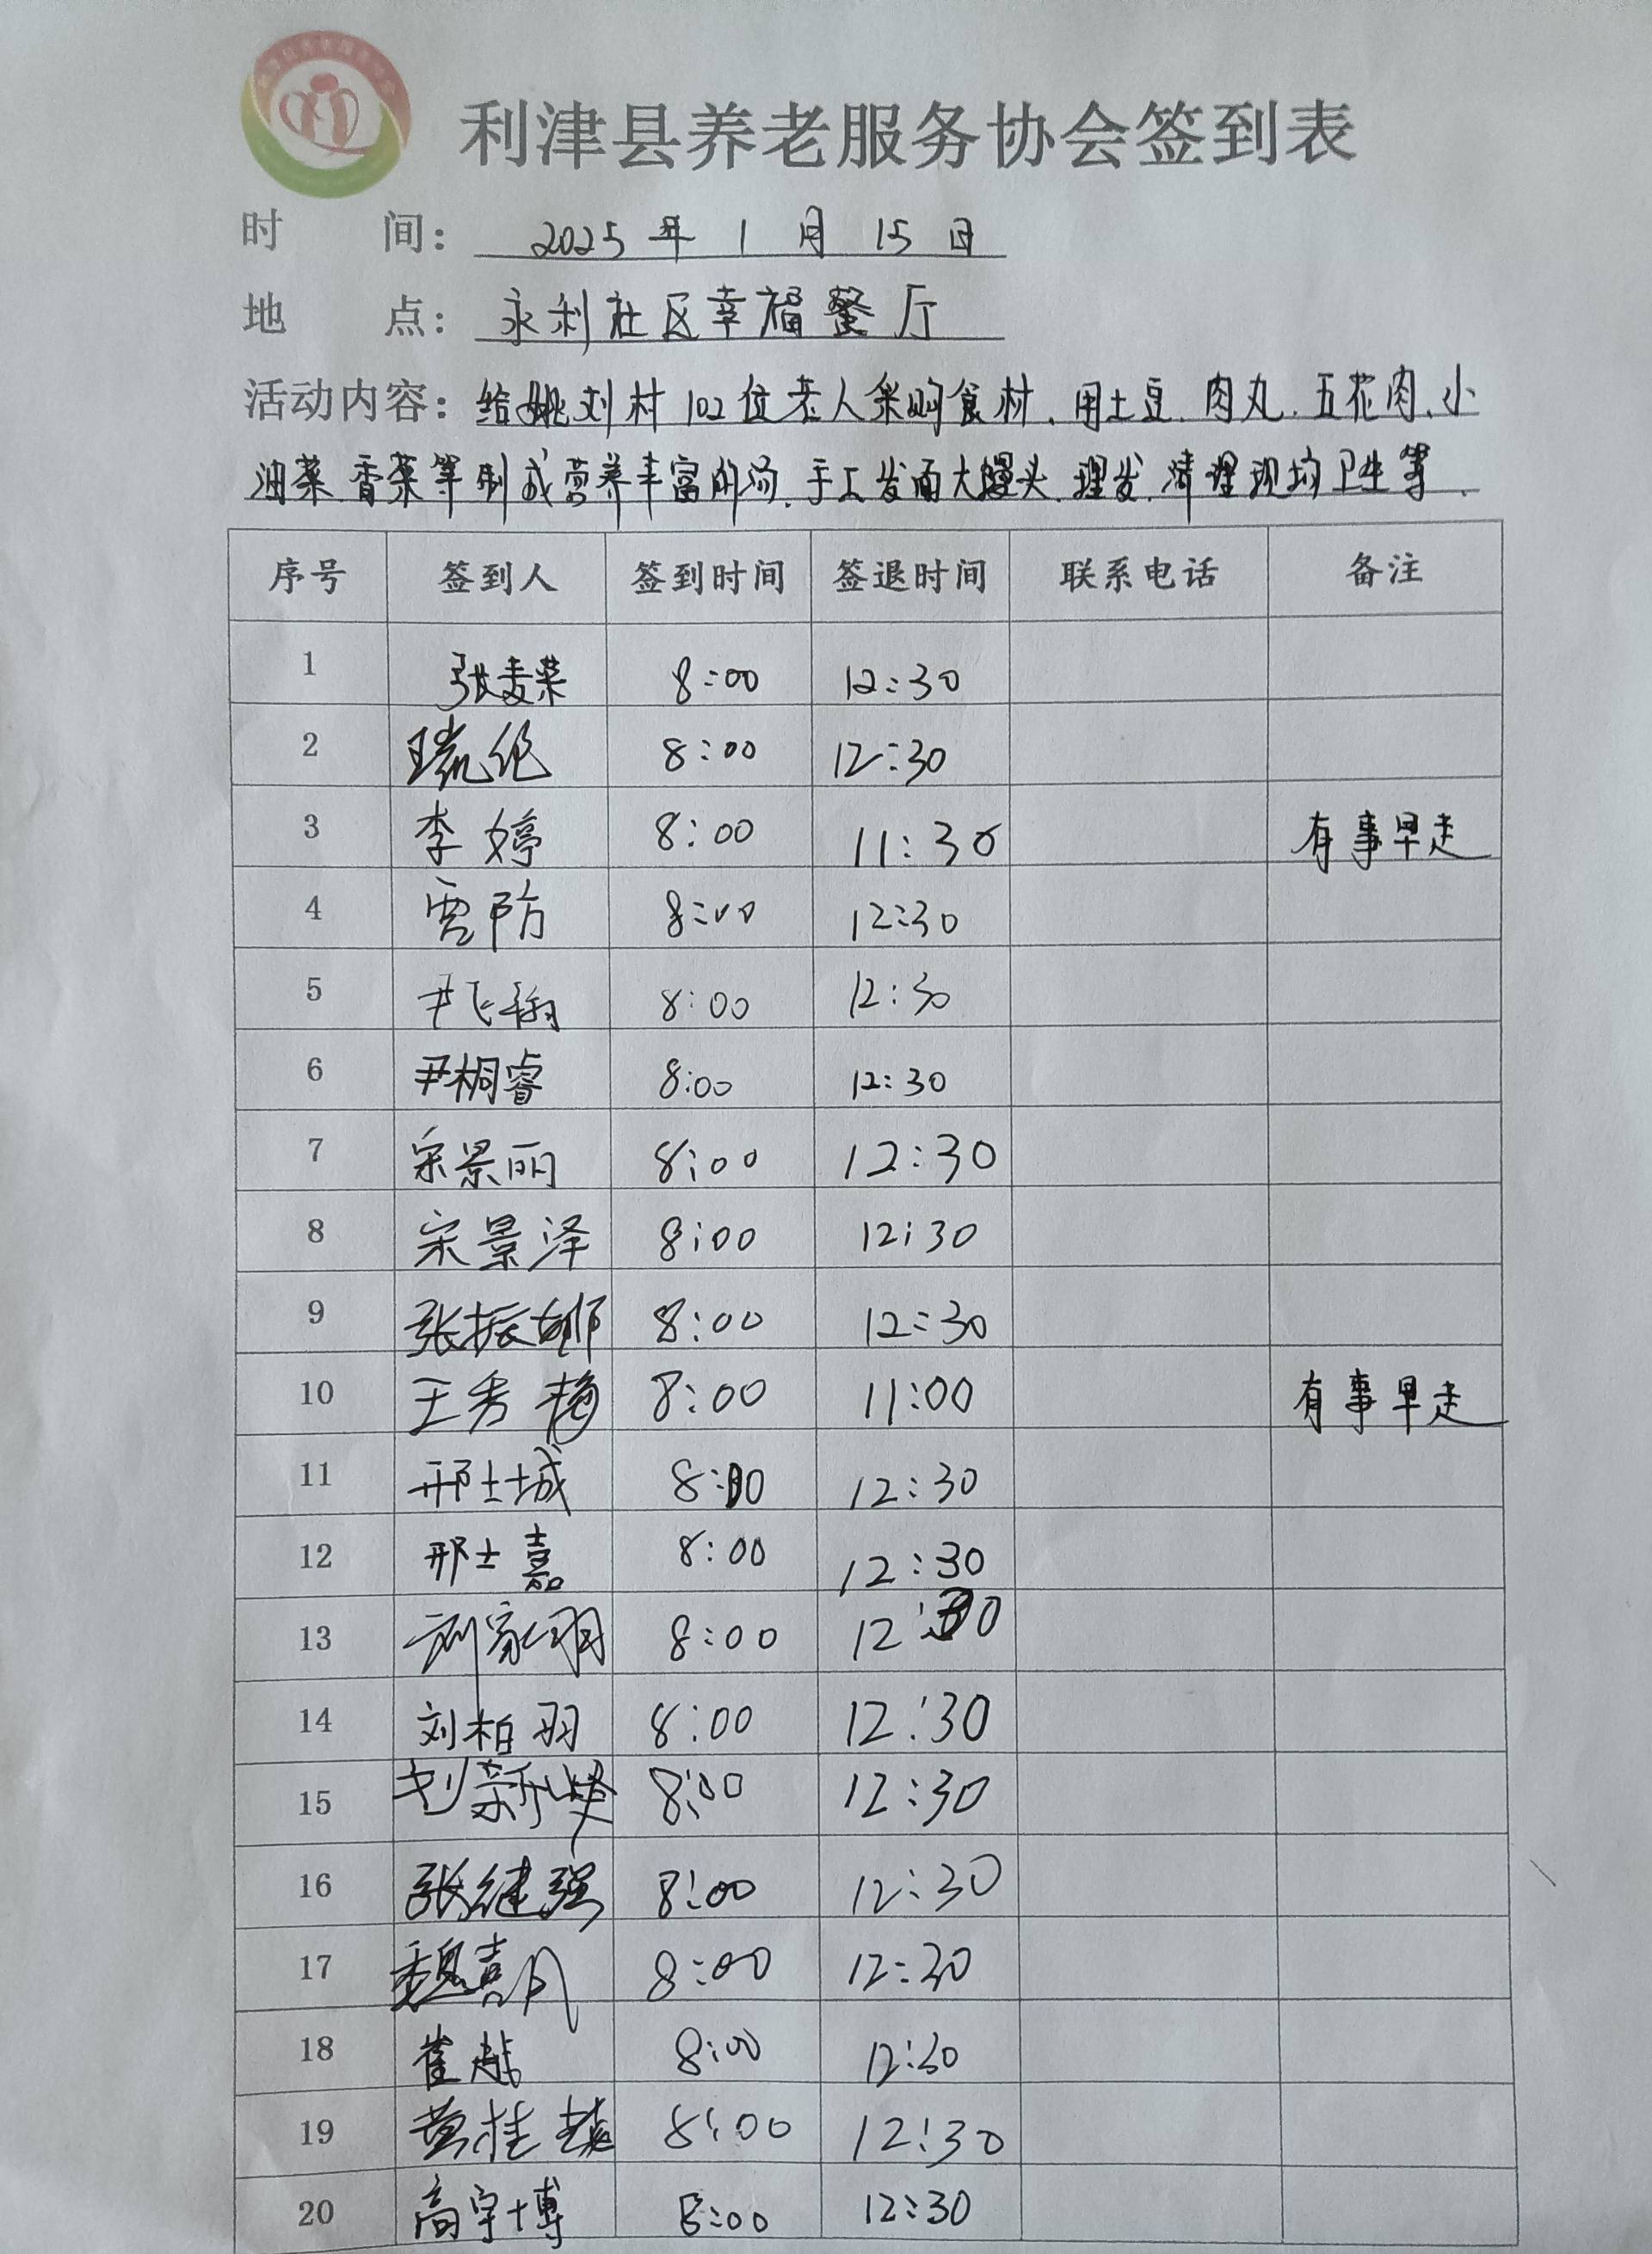 利津县养老服务协会签到表
时 间: 2025年1月15日
地 点: 永利社区幸福餐厅
活动内容: 给姚刘村102位老人采购食材、用土豆、肉丸、五花肉、小
油菜、香菜等制成营养丰富的汤、手工发面大馒头、理发、清理现场卫生等、
序号 签到人 签到时间 签退时间 联系电话 备注
1 张麦菜 8:00 12:30
2 8:00 12:30
3 李婷 8:00 11:30 有事早走
4 贾防 8:00 12:30
5 尹飞翔 8:00 12:30
6 尹桐睿 8:00 12:30
7 宋景丽 8:00 12:30
8 宋景泽 8:00 12:30
9 张振娜 8:00 12:30
10 王秀梅 8:00 11:00 有事早走
11 邢士城 8:00 12:30
12 邢士嘉 8:00 12:30
13 8:00 12:30
14 刘柏羽 8:00 12:30
15 8:00 12:30
16 张继强 8:00 12:30
17 8:00 12:30
18 崔越 8:00 12:30
19 8:00 12:30
20 高宇博 8:00 12:30